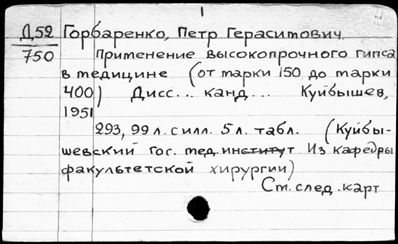 1
Д52 Горбаренко, Петр Герасимович.
750 Применение высокопрочного гипса
в медицине (от марки 150 до марки
400) Дисс... канд... Куйбышев,
1951
293, 99 л. с илл. 5 л. табл. (Куйбы-
шевский гос. мед. институт Из кафедры
факультетской хирургии)
См. след. карт